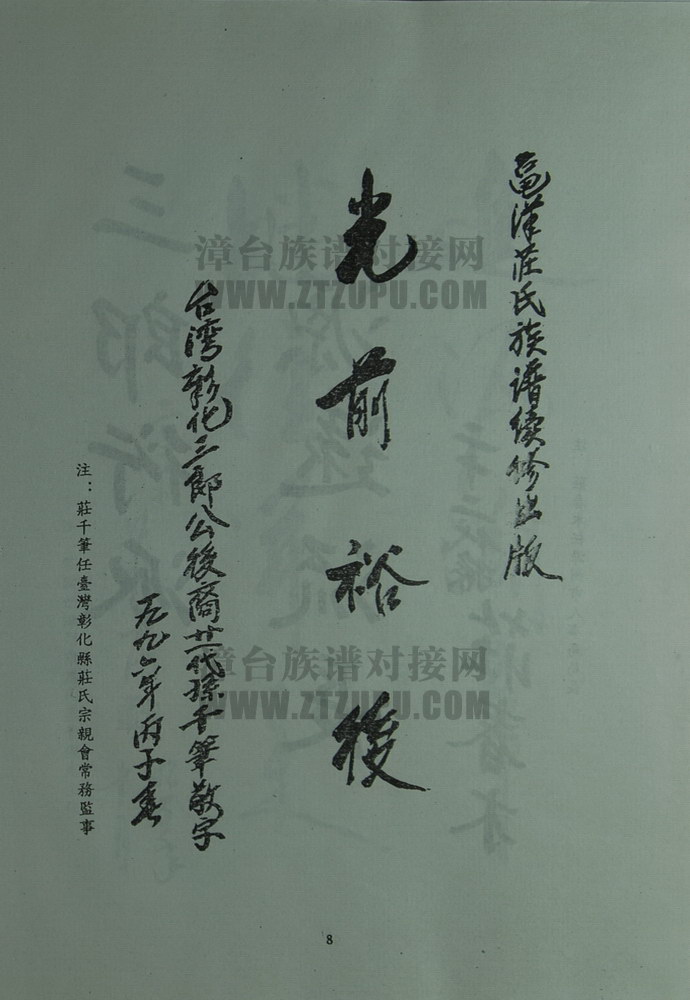 邑洋莊氏族谱续修出版
光前裕後
台湾彰化三郎公後裔廿一代孫千筆敬字
一九九六年丙子春
注：莊千筆任臺灣彰化縣莊氏宗親會常務監事
漳台族谱对接网
WWW.ZTZUPU.COM
漳台族谱对接网
WWW.ZTZUPU.COM
8